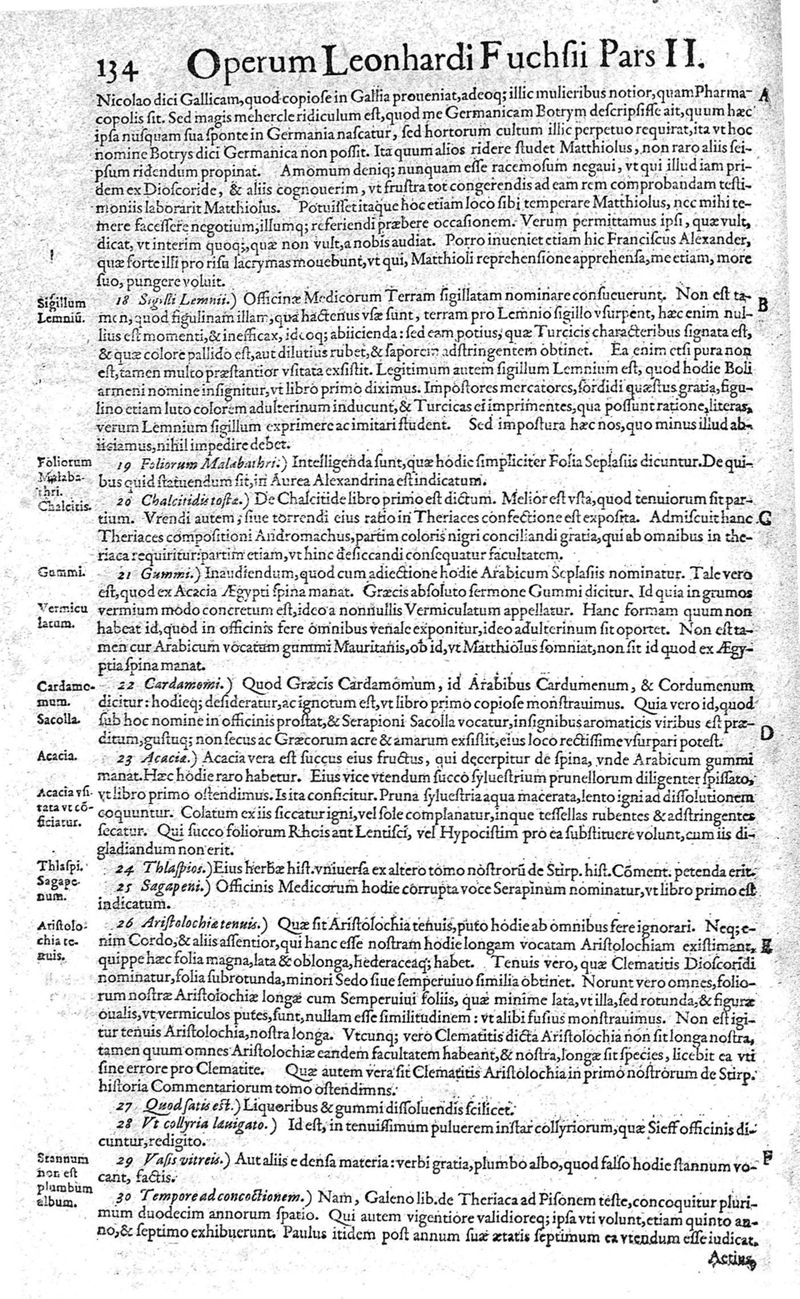 134 Operum Leonhardi Fuchsii Pars II.
Nicolao dici Gallicam, quod copiose in Gallia proueniat, adeoq; illic mulieribus notior, quam Pharma- A
copolis sit. Sed magis mehercle ridiculum est, quod me Germanicam Botrym descripsisse ait, quum hæc
ipsa nusquam sua sponte in Germania nascatur, sed hortorum cultum illic perpetuo requirat, ita vt hoc
nomine Botrys dici Germanica non possit. Ita quum alios ridere studet Matthiolus, non raro aliis sei-
psum ridendum propinat. Amomum deniq; nunquam esse racemosum negaui, vt qui illud iam pri-
dem ex Dioscoride, & aliis cognouerim, vt frustra tot congerendis ad eam rem comprobandam testi-
moniis laborarit Matthiolus. Potuisset itaque hoc etiam loco sibi temperare Matthiolus, nec mihi te-
mere facessere negotium, illumq; referiendi præbere occasionem. Verum permittamus ipsi, quæ vult,
dicat, vt interim quoq;, quæ non vult, a nobis audiat. Porro inueniet etiam hic Franciscus Alexander,
quæ forte illi pro risu lacrymas mouebunt, vt qui, Matthioli reprehensione apprehensa, me etiam, more
suo, pungere voluit.
Sigillum 18 Sigilli Lemnii.) Officinæ Medicorum Terram sigillatam nominare consueuerunt. Non est ta- B
Lemniū. men, quod figulinam illam, qua hactenus vsæ sunt, terram pro Lemnio sigillo vsurpent, hæc enim nul-
lius est momenti, & inefficax, ideoq; abiicienda: sed eam potius, quæ Turcicis characteribus signata est,
& quæ colore pallido est, aut dilutius rubet, & saporem adstringentem obtinet. Ea enim etsi pura non
est, tamen multo præstantior vsitata exsistit. Legitimum autem sigillum Lemnium est, quod hodie Boli
armeni nomine insignitur, vt libro primo diximus. Impostores mercatores, sordidi quæstus gratia, figu-
lino etiam luto colorem adulterinum inducunt, & Turcicas ei imprimentes, qua possunt ratione, literas,
verum Lemnium sigillum exprimere ac imitari student. Sed impostura hæc nos, quo minus illud ab-
iiciamus, nihil impedire debet.
Foliorum 19 Foliorum Malabathri.) Intelligenda sunt, quæ hodie simpliciter Folia Seplasiis dicuntur. De qui-
Malaba- bus quid statuendum sit, in Aurea Alexandrina est indicatum.
thri.
Chalcitis. 20 Chalcitidis tostæ.) De Chalcitide libro primo est dictum. Melior est vsta, quod tenuiorum sit par-
tium. Vrendi autem, siue torrendi eius ratio in Theriaces confectione est exposita. Admiscuit hanc C
Theriaces compositioni Andromachus, partim coloris nigri conciliandi gratia, qui ab omnibus in the-
riaca requiritur: partim etiam, vt hinc desiccandi consequatur facultatem.
Gummi. 21 Gummi.) Inaudiendum, quod cum adiectione hodie Arabicum Seplasiis nominatur. Tale vero
est, quod ex Acacia Ægypti spina manat. Græcis absoluto sermone Gummi dicitur. Id quia in grumos
Vermicu vermium modo concretum est, ideo a nonnullis Vermiculatum appellatur. Hanc formam quum non
latum. habeat id, quod in officinis fere omnibus venale exponitur, ideo adulterinum sit oportet. Non est ta-
men cur Arabicum vocatum gummi Mauritanis, ob id, vt Matthiolus somniat, non sit id quod ex Ægy-
ptia spina manat.
Cardamo- 22 Cardamomi.) Quod Græcis Cardamomum, id Arabibus Cardumenum, & Cordumenum
mum. dicitur: hodieq; desideratur, ac ignotum est, vt libro primo copiose monstrauimus. Quia vero id, quod
Sacolla. sub hoc nomine in officinis prostat, & Serapioni Sacolla vocatur, insignibus aromaticis viribus est præ- D
ditum, gustuq; non secus ac Græcorum acre & amarum exsistit, eius loco rectissime vsurpari potest.
Acacia. 23 Acaciæ.) Acacia vera est succus eius fructus, qui decerpitur de spina, vnde Arabicum gummi
manat. Hæc hodie raro habetur. Eius vice vtendum succo syluestrium prunellorum diligenter spissato,
Acacia vsi- vt libro primo ostendimus. Is ita conficitur. Pruna syluestria aqua macerata, lento igni ad dissolutionem
tata vt cō- coquuntur. Colatum ex iis siccatur igni, vel sole complanatur, inque tessellas rubentes & adstringentes
ficiatur. secatur. Qui succo foliorum Rhois aut Lentisci, vel Hypocistim pro ea substituere volunt, cum iis di-
gladiandum non erit.
Thlaspi. 24 Thlaspios.) Eius herbæ hist. vniuersa ex altero tomo nostrorū de Stirp. hist. Cōment. petenda erit.
Sagape- 25 Sagapeni.) Officinis Medicorum hodie corrupta voce Serapinum nominatur, vt libro primo est
num. indicatum.
Aristolo- 26 Aristolochia tenuis.) Quæ sit Aristolochia tenuis, puto hodie ab omnibus fere ignorari. Neq; e-
chia te- nim Cordo, & aliis assentior, qui hanc esse nostram hodie longam vocatam Aristolochiam existimant, E
nuis. quippe hæc folia magna, lata & oblonga, hederaceaq; habet. Tenuis vero, quæ Clematitis Dioscoridi
nominatur, folia subrotunda, minori Sedo siue semperuiuo similia obtinet. Norunt vero omnes, folio-
rum nostræ Aristolochiæ longæ cum Semperuiui foliis, quæ minime lata, vt illa, sed rotunda, & figuræ
oualis, vt vermiculos putes, sunt, nullam esse similitudinem: vt alibi fusius monstrauimus. Non est igi-
tur tenuis Aristolochia, nostra longa. Vtcunq; vero Clematitis dicta Aristolochia non sit longa nostra,
tamen quum omnes Aristolochiæ eandem facultatem habeant, & nostra, longæ sit species, licebit ea vti
sine errore pro Clematite. Quæ autem vera sit Clematitis Aristolochia in primo nostrorum de Stirp.
historia Commentariorum tomo ostendimus.
27 Quod satis est.) Liquoribus & gummi dissoluendis scilicet.
28 Vt collyria læuigato.) Id est, in tenuissimum puluerem instar collyriorum, quæ Sieff officinis di-
cuntur, redigito.
Stannum 29 Vasis vitreis.) Aut aliis e densa materia: verbi gratia, plumbo albo, quod falso hodie stannum vo- F
non est cant, factis.
plumbum
album. 30 Tempore ad concoctionem.) Nam, Galeno lib. de Theriaca ad Pisonem teste, concoquitur pluri-
mum duodecim annorum spatio. Qui autem vigentiore validioreq; ipsa vti volunt, etiam quinto an-
no, & septimo exhibuerunt. Paulus itidem post annum suæ ætatis septimum ea vtendum esse iudicat.
Actius,